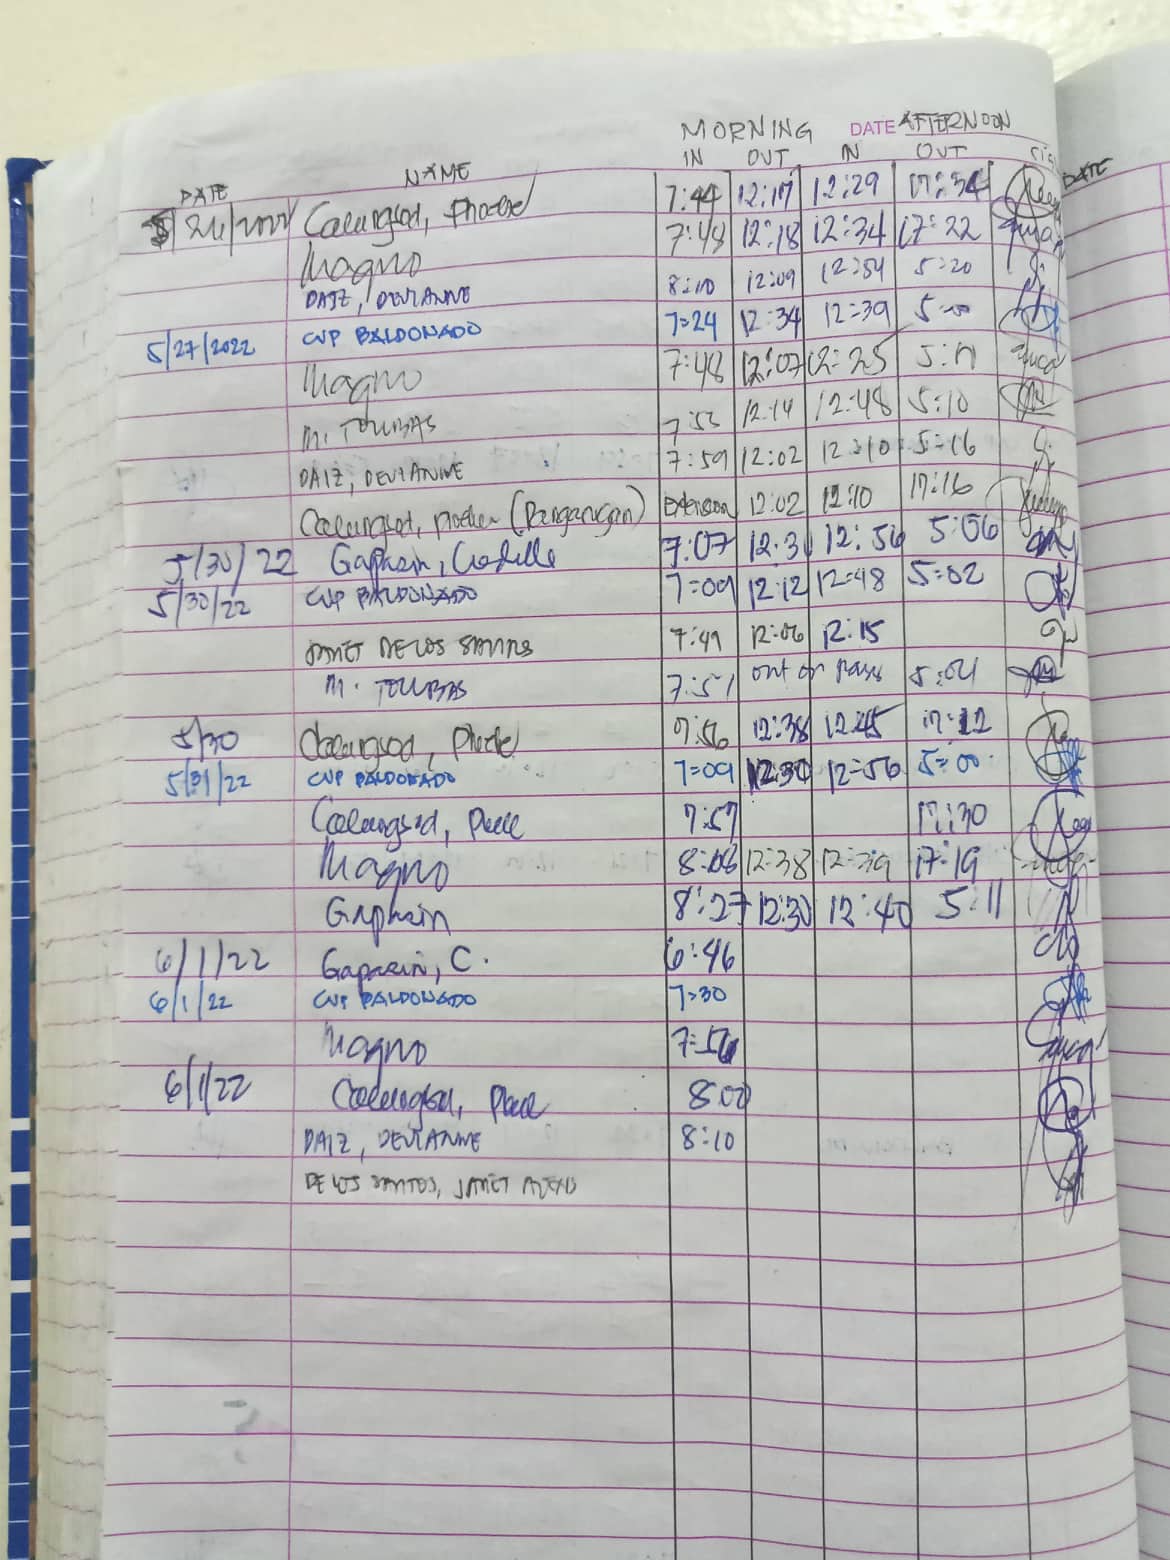 MORNING DATE AFTERNOON
DATE NAME IN OUT IN OUT DATE
Calungsod, Phoebe 7:44 12:17 12:29 17:34
Magno 7:48 12:18 12:34 17:22
DAIZ, DEVIANNE 8:10 12:09 12:54 5:20
5/27/2022 CVP BALDONADO 7:24 12:34 12:39 5:00
Magno 7:48 12:07 12:25 5:17
M. TOLIBAS 7:53 12:14 12:48 5:10
DAIZ, DEVIANNE 7:59 12:02 12:10 5:16
Calungsod, Extension 12:02 12:10 17:16
5/30/22 7:07 12:3 12:56 5:06
5/30/22 CVP BALDONADO 7:09 12:12 12:48 5:02
JANET DE LOS SANTOS 7:49 12:06 12:15
M. TOLIBAS 7:51 out on pass 5:04
5/30 Calungsod, 7:56 12:38 12:45 17:12
5/31/22 CVP BALDONADO 7:09 12:30 12:56 5:00
Calungsod, 7:57 17:30
Magno 8:08 12:38 12:39 17:19
8:27 12:30 12:40 5:11
6/1/22 C. 6:46
6/1/22 CVP BALDONADO 7:30
Magno 7:56
6/1/22 Calungsod, 8:00
DAIZ, DEVIANNE 8:10
DE LOS SANTOS, JANET